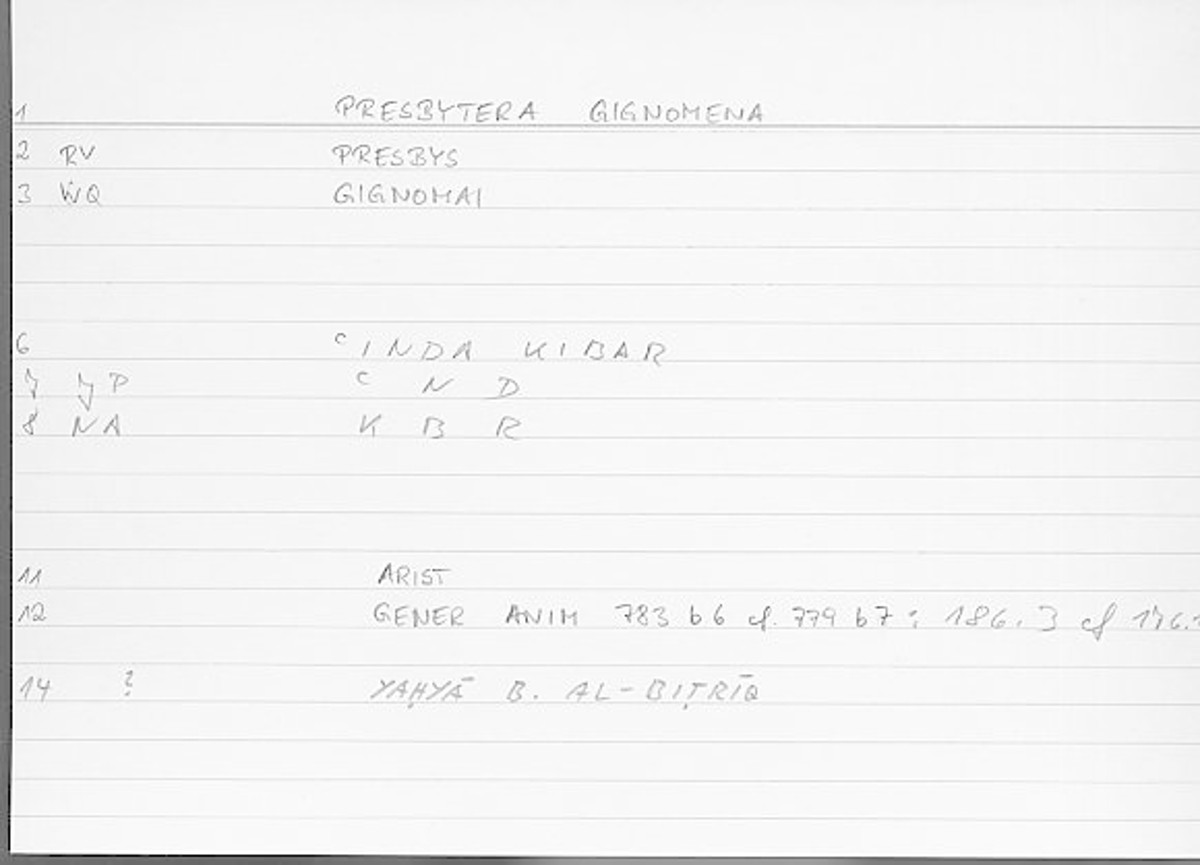 1 PRESBYTERA GIGNOMENA
2 RV PRESBYS
3 WQ GIGNOMAI
6 ʿINDA KIBAR
7 JP ʿ N D
8 NA K B R
11 ARIST
12 GENER ANIM 783 b 6 cf. 779 b 7 : 186.3 cf
14 ? YAḤYĀ B. AL-BIṬRĪQ